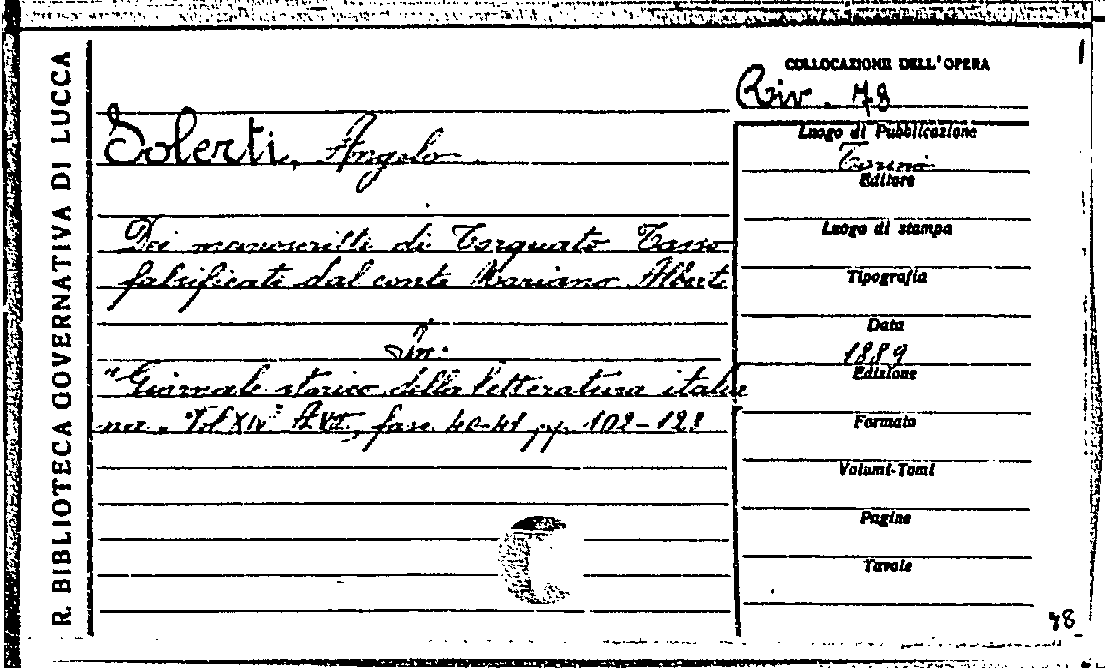 R. BIBLIOTECA GOVERNATIVA DI LUCCA
COLLOCAZIONE DELL'OPERA
Riv. 78
Solerti, Angelo
Dei manoscritti di Torquato Tasso
falsificati dal conte Mariano Alberti
In:
"Giornale storico della letteratura italia
na". Vol XIV° A VII, fasc. 40-41 pp. 102-128
Luogo di Pubblicazione
Torino
Editore
Luogo di stampa
Tipografia
Data
1889
Edizione
Formato
Volumi-Tomi
Pagine
Tavole
78